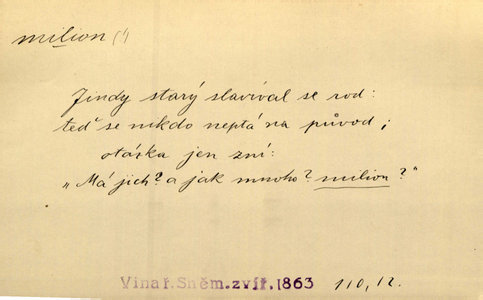 milion (')
Jindy starý slavíval se rod:
teď se nikdo neptá na původ;
otázka jen zní:
„Má jich? a jak mnoho? milion?"
Vinař. Sněm. zvíř. 1863 110, 12.